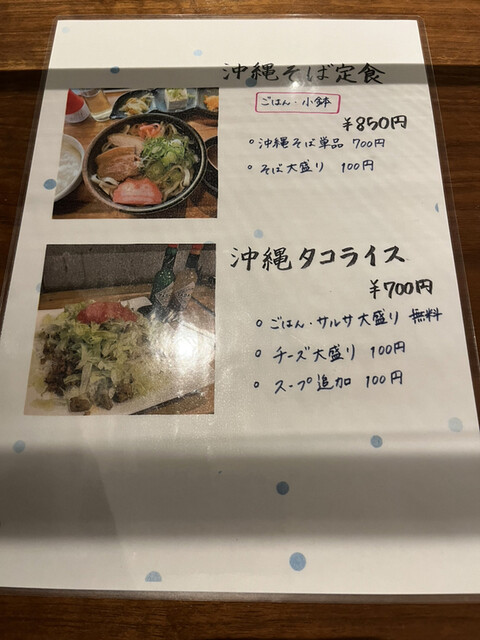 沖縄そば定食
ごはん・小鉢
¥850円
○沖縄そば単品 700円
○そば大盛り 100円
沖縄タコライス
¥700円
○ごはん・サルサ大盛り 無料
○チーズ大盛り 100円
○スープ追加 100円